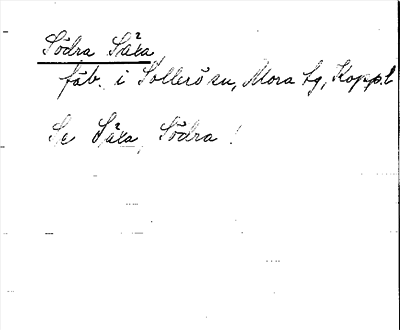 Södra Säxa
fäb. i Sollerö sn, Mora tg, Kopp.l
Se Säxa, Södra!